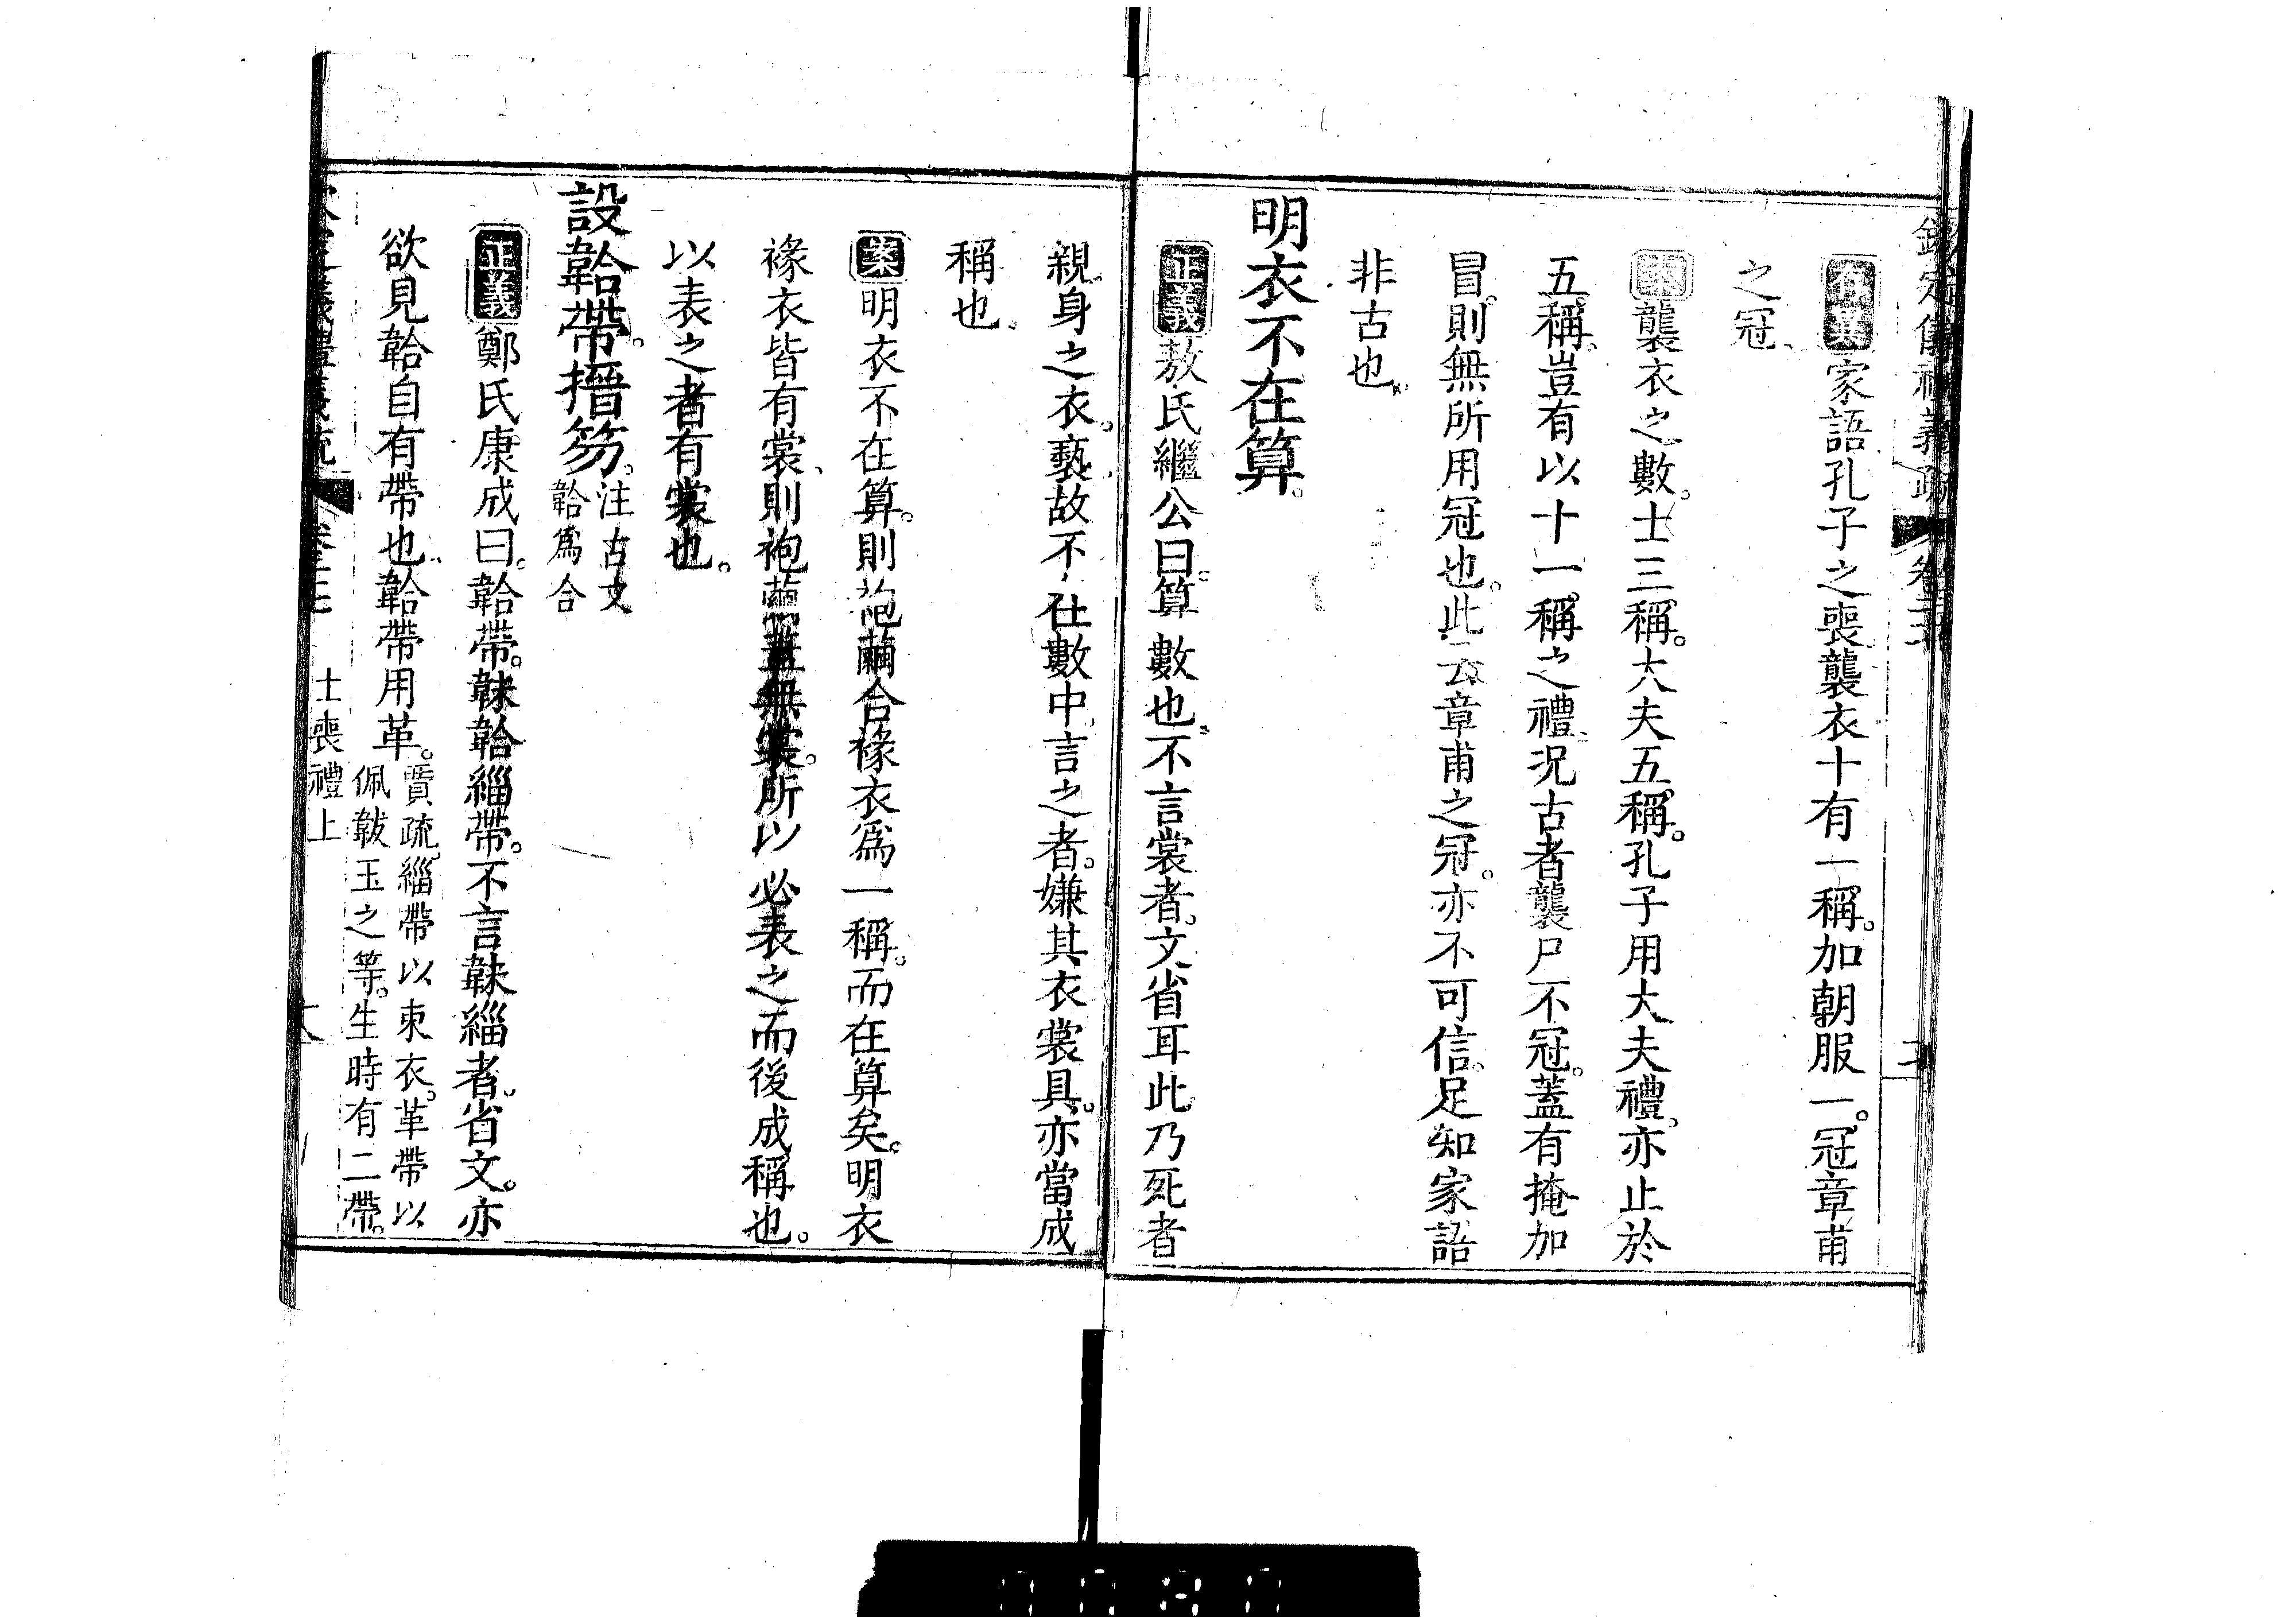 欽定儀禮義疏 卷二十
存異家語孔子之喪襲衣十有一稱。加朝服一。冠章甫
之冠、
案襲衣之數。士三稱。大夫五稱。孔子用大夫禮。亦止於
五稱。豈有以十一稱之禮、況古者襲尸不冠。蓋有掩加
冒。則無所用冠也。此云章甫之冠。亦不可信。足知家語
非古也、
明衣不在算。
正義敖氏繼公曰。算數也、不言裳者。文省耳此乃死者
親身之衣。褻故不在數中、言之者。嫌其衣裳具。亦當成
稱也。
案明衣不在算。則袍繭合褖衣爲一稱。而在算矣。明衣
褖衣皆有裳、則袍繭蓋無裳。所以必表之而後成稱也。
以表之者有裳也。
設韐帶。搢笏。注古文韐爲合
正義鄭氏康成曰。韐帶。韎韐緇帶。不言韎緇者。省文。亦
欲見韐自有帶也、韐帶用革。賈疏。緇帶以束衣。革帶以佩韍玉之等。生時有二帶。
士喪禮上